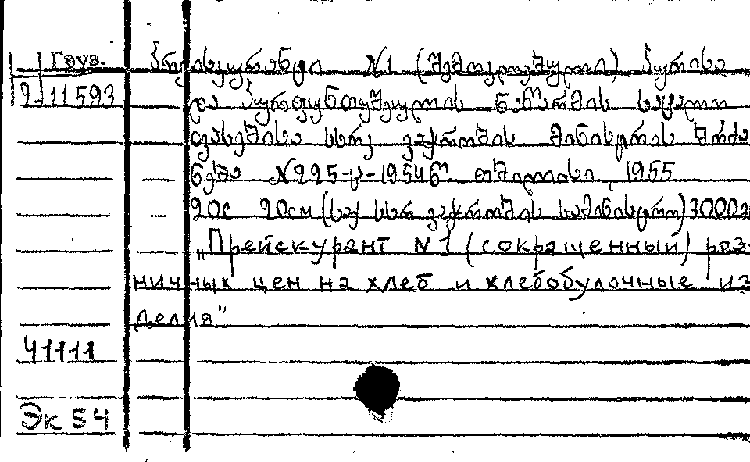 Груз.
პრეისკურანტი N1 (შემოკლებული) პურისა
2-11593
და პურფუნთუშეულის წვრილმან საცალო
ფასებისა სსრკ ვაჭრობის მინისტრის ბრძა
ნება N225-ც-1954წ. თბილისი, 1955
20с 20см (საქ სსრ ვაჭრობის სამინისტრო) 3000ა
„Прейскурант N1 (сокращенный) роз-
ничных цен на хлеб и хлебобулочные из
делия"
41111
Эк 54